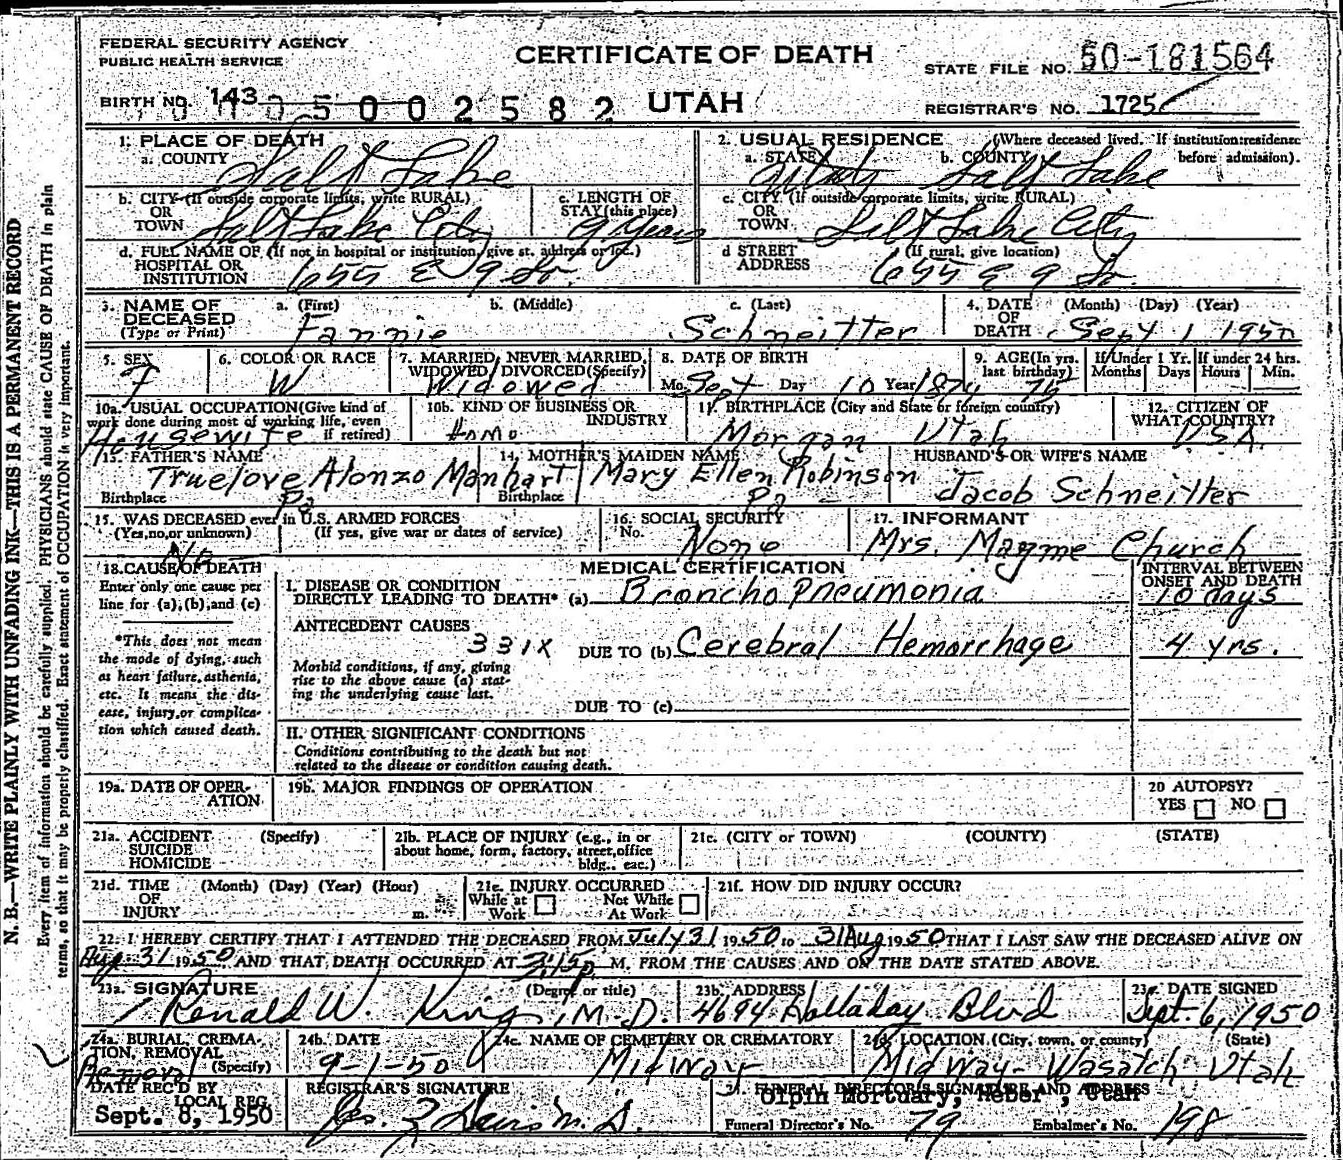 FEDERAL SECURITY AGENCY
PUBLIC HEALTH SERVICE
CERTIFICATE OF DEATH
UTAH
STATE FILE NO. 50-181564
BIRTH NO. 143
0050025 8 2
REGISTRAR'S NO. 1725
N. B.—WRITE PLAINLY WITH UNFADING INK—THIS IS A PERMANENT RECORD
Every item of information should be carefully supplied. PHYSICIANS should state CAUSE OF DEATH in plain
terms, so that it may be properly classified. Exact statement of OCCUPATION is very important.
1. PLACE OF DEATH
a. COUNTY Salt Lake
2. USUAL RESIDENCE (Where deceased lived. If institution: residence
before admission).
a. STATE Utah b. COUNTY Salt Lake
b. CITY (If outside corporate limits, write RURAL)
OR
TOWN Salt Lake City
c. LENGTH OF
STAY (this place) 9 Years
c. CITY (If outside corporate limits, write RURAL)
OR
TOWN Salt Lake City
d. FULL NAME OF (If not in hospital or institution, give st. address or loc.)
HOSPITAL OR
INSTITUTION 655 E 9 So.
d STREET (If rural, give location)
ADDRESS 655 E 9 So
3. NAME OF
DECEASED
(Type or Print)
a. (First) b. (Middle) c. (Last)
Fannie Schneitter
4. DATE (Month) (Day) (Year)
OF
DEATH Sept 1 1950
5. SEX
F
6. COLOR OR RACE
W
7. MARRIED, NEVER MARRIED,
WIDOWED, DIVORCED (Specify)
Widowed
8. DATE OF BIRTH
Mo. Sept Day 10 Year 1874
9. AGE (In yrs.
last birthday)
75
If Under 1 Yr.
Months Days
If under 24 hrs.
Hours Min.
10a. USUAL OCCUPATION (Give kind of
work done during most of working life, even
if retired)
Housewife
10b. KIND OF BUSINESS OR
INDUSTRY
Home
11. BIRTHPLACE (City and State or foreign country)
Morgan Utah
12. CITIZEN OF
WHAT COUNTRY?
U.S.A.
13. FATHER'S NAME
Truelove Alonzo Manhart
Birthplace Pa
14. MOTHER'S MAIDEN NAME
Mary Ellen Robinson
Birthplace Pa
HUSBAND'S OR WIFE'S NAME
Jacob Schneitter
15. WAS DECEASED ever in U.S. ARMED FORCES
(Yes, no, or unknown) (If yes, give war or dates of service)
No
16. SOCIAL SECURITY
No. None
17. INFORMANT
Mrs. Mayme Church
18. CAUSE OF DEATH
Enter only one cause per
line for (a), (b), and (c)
*This does not mean
the mode of dying, such
as heart failure, asthenia,
etc. It means the dis-
ease, injury, or complica-
tion which caused death.
MEDICAL CERTIFICATION
INTERVAL BETWEEN
ONSET AND DEATH
I. DISEASE OR CONDITION
DIRECTLY LEADING TO DEATH* (a) Broncho Pneumonia 10 days
ANTECEDENT CAUSES
331X DUE TO (b) Cerebral Hemorrhage 4 yrs.
Morbid conditions, if any, giving
rise to the above cause (a) stat-
ing the underlying cause last.
DUE TO (c)
II. OTHER SIGNIFICANT CONDITIONS
Conditions contributing to the death but not
related to the disease or condition causing death.
19a. DATE OF OPER-
ATION
19b. MAJOR FINDINGS OF OPERATION
20 AUTOPSY?
YES NO
21a. ACCIDENT (Specify)
SUICIDE
HOMICIDE
21b. PLACE OF INJURY (e.g., in or
about home, form, factory, street, office
bldg., eac.)
21c. (CITY or TOWN) (COUNTY) (STATE)
21d. TIME (Month) (Day) (Year) (Hour)
OF
INJURY m.
21e. INJURY OCCURRED
While at Not While
Work At Work
21f. HOW DID INJURY OCCUR?
22. I HEREBY CERTIFY THAT I ATTENDED THE DECEASED FROM July 31 1950 to 31 Aug 1950 THAT I LAST SAW THE DECEASED ALIVE ON
Aug. 31 1950 AND THAT DEATH OCCURRED AT 2:15p M. FROM THE CAUSES AND ON THE DATE STATED ABOVE.
23a. SIGNATURE (Degree or title)
Ronald W. King, M.D.
23b. ADDRESS
4694 Holladay Blvd
23c. DATE SIGNED
Sept. 6, 1950
24a. BURIAL, CREMA-
TION, REMOVAL
(Specify)
Removal
24b. DATE
9-1-50
24c. NAME OF CEMETERY OR CREMATORY
Midway
24d. LOCATION (City, town, or county) (State)
Midway-Wasatch Utah
DATE REC'D BY
LOCAL REG.
Sept. 8, 1950
REGISTRAR'S SIGNATURE
FUNERAL DIRECTOR'S SIGNATURE AND ADDRESS
Olpin Mortuary, Heber, Utah
Funeral Director's No. 79 Embalmer's No. 198